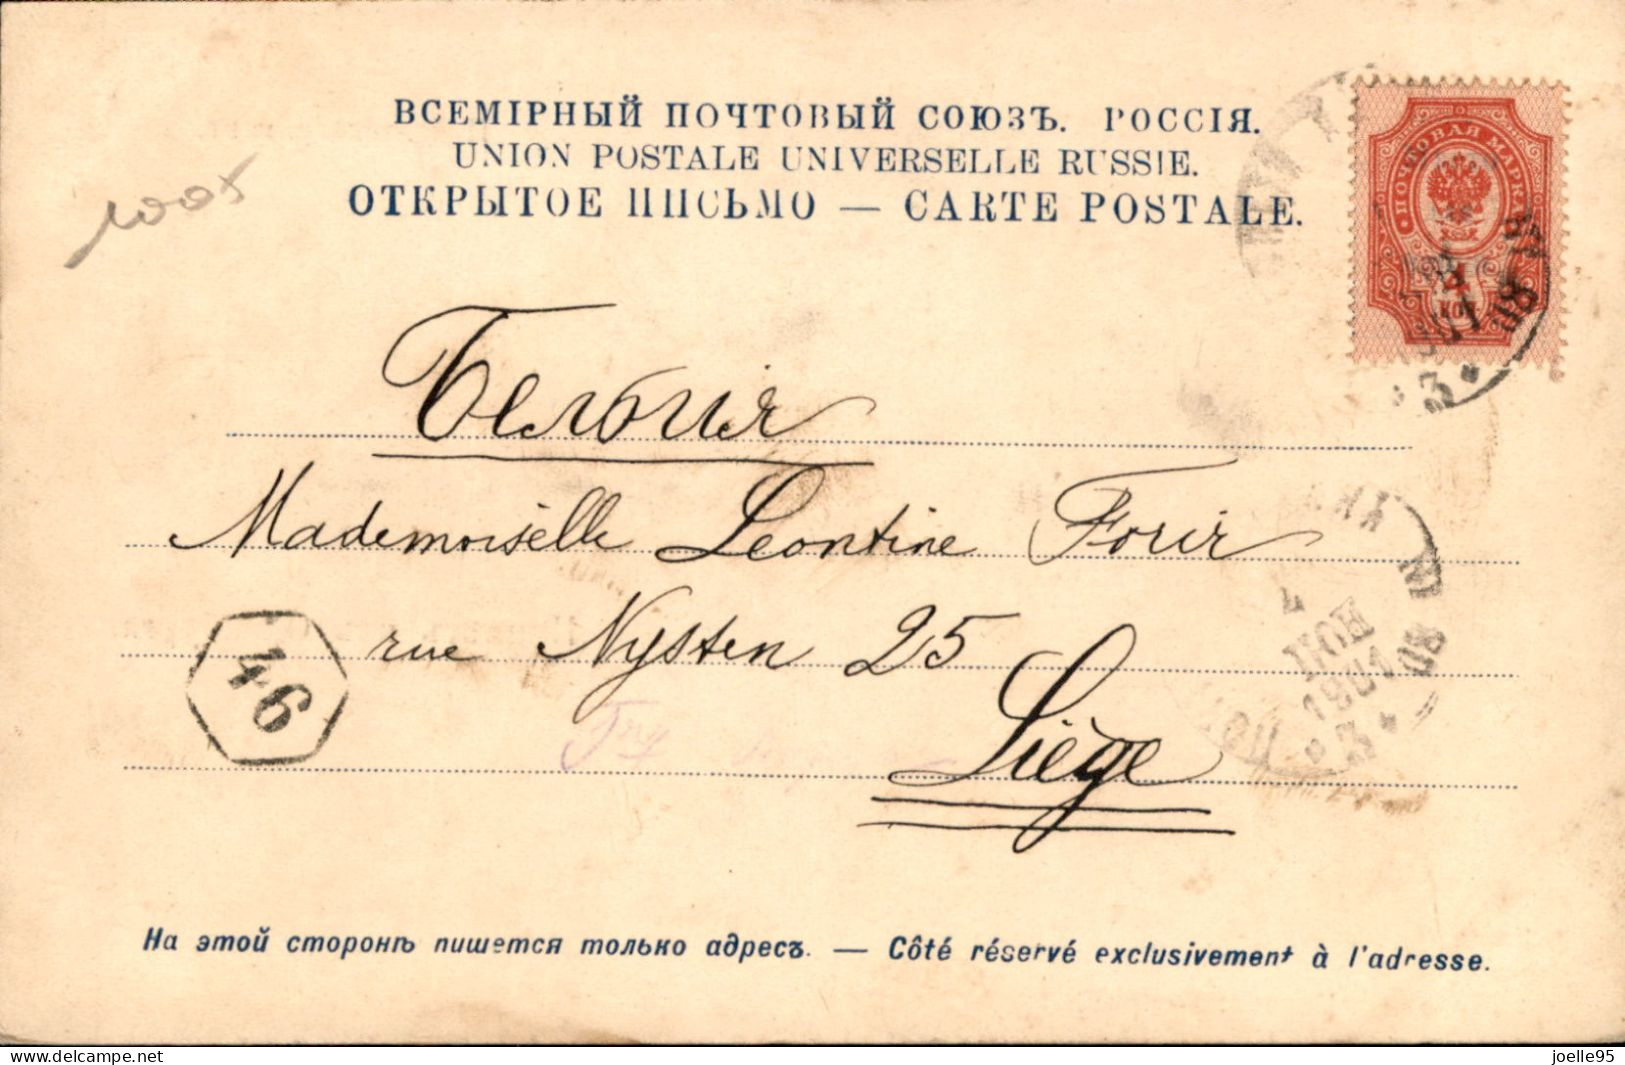 ВСЕМІРНЫЙ ПОЧТОВЫЙ СОЮЗЪ. РОССІЯ.
UNION POSTALE UNIVERSELLE RUSSIE.
ОТКРЫТОЕ ПИСЬМО — CARTE POSTALE.
1005
ПОЧТОВАЯ МАРКА
4
КОП
3
Бельгія
Mademoiselle Leontine Forir
rue Nysten 25
Liège
46
7
НОЯ
1901
3
На этой сторонѣ пишется только адресъ. — Côté réservé exclusivement à l'adresse.
www.delcampe.net
joelle95